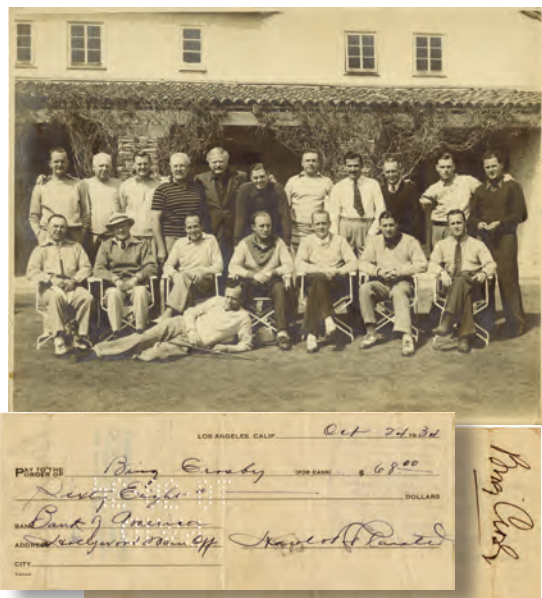 LOS ANGELES, CALIF. Oct 24 1934
PAY TO THE ORDER OF Bing Crosby (FOR CASH) $ 68.00
Sixty Eight DOLLARS
BANK Bank of America
ADDRESS Hollywood Main Off
CITY
Bing Crosby